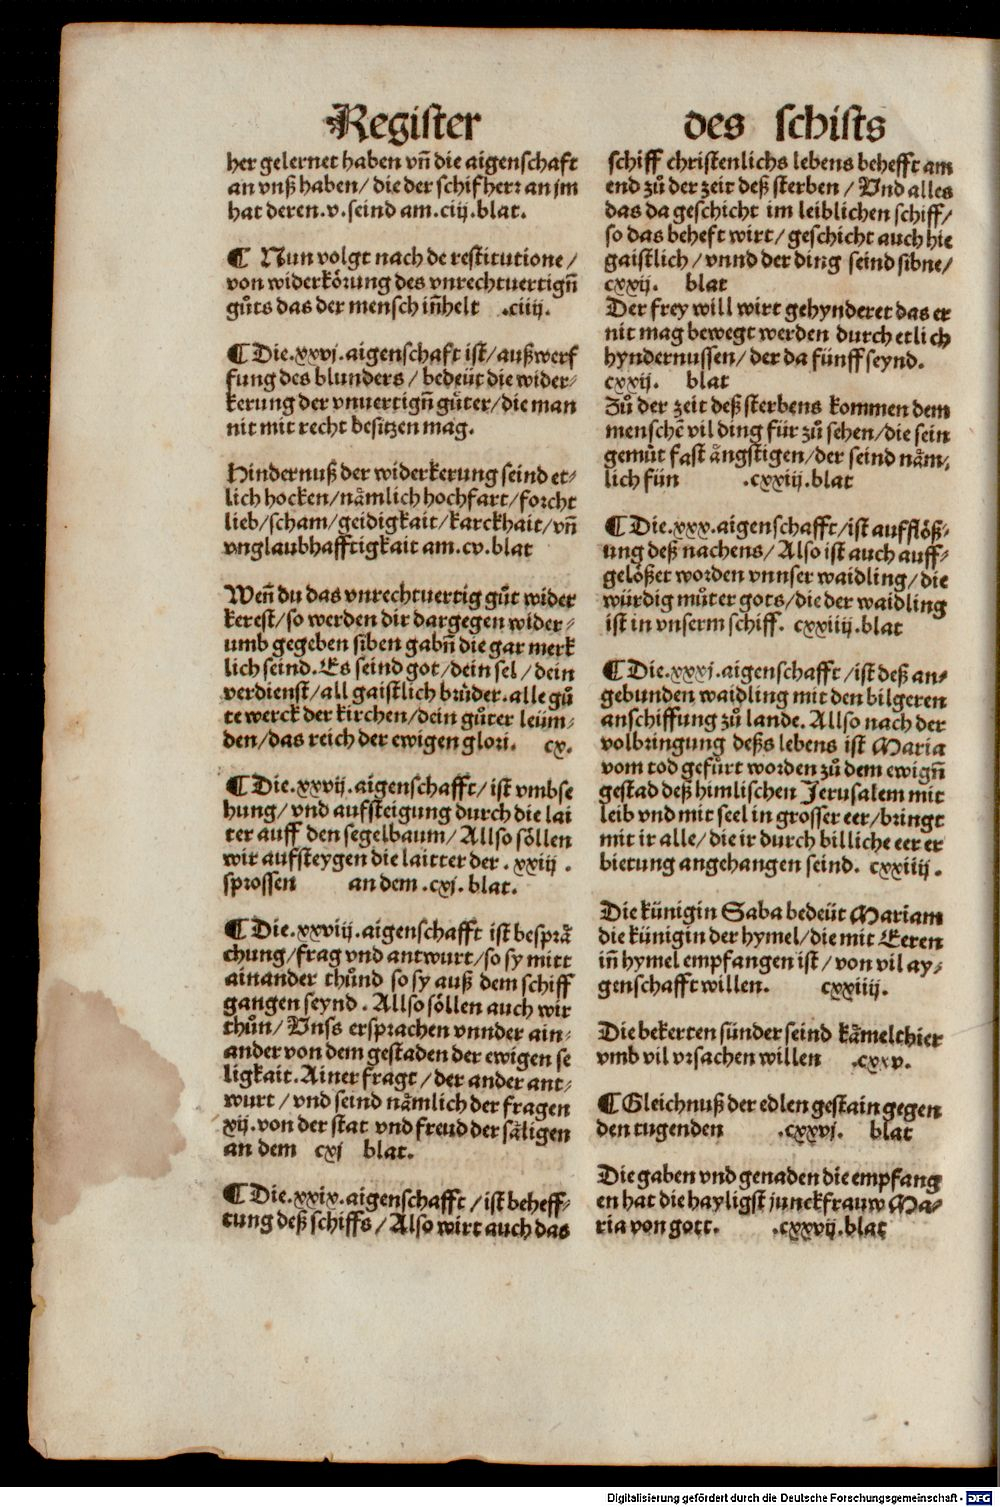 Register
her gelernet haben vn̄ die aigenschaft
an vnß haben / die der schifherr an jm
hat deren .v. seind am .ciij. blat.
¶ Nun volgt nach de restitutione /
von widerkörung des vnrechtuertign̄
gůts das der mensch in̄helt .ciiij.
¶ Die .xxvj. aigenschaft ist / außwerf
fung des blunders / bedeüt die wider⸗
kerung der vnuertign̄ gůter / die man
nit mit recht besitzen mag.
Hindernuß der widerkerung seind et⸗
lich hocken / nämlich hochfart / forcht
lieb / scham / geidigkait / karckhait / vn̄
vnglaubhafftigkait am .cv. blat
Wen̄ du das vnrechtuertig gůt wider
kerest / so werden dir dargegen wider⸗
umb gegeben siben gabn̄ die gar merk
lich seind. Es seind got / dein sel / dein
verdienst / all gaistlich brůder. alle gů
te werck der kirchen / dein gůter leüm⸗
den / das reich der ewigen glori. cx.
¶ Die .xxvij. aigenschafft / ist vmbse
hung / vnd aufsteigung durch die lai
ter auff den segelbaum / Allso söllen
wir aufsteygen die laitter der .xxiij .
sprossen an dem .cxj. blat.
¶ Die .xxviij. aigenschafft ist besprä
chung / frag vnd antwurt / so sy mitt
ainander thůnd so sy auß dem schiff
gangen seynd . Allso söllen auch wir
thůn / Vnss ersprachen vnnder ain⸗
ander von dem gestaden der ewigen se
ligkait. Ainer fragt / der ander ant⸗
wurt / vnd seind nämlich der fragen
xij. von der stat vnd freud der säligen
an dem cxj blat.
¶ Die .xxix. aigenschafft / ist beheff⸗
tung deß schiffs / Also wirt auch das
des schifts
schiff christenlichs lebens behefft am
end zů der zeit deß sterben / Vnd alles
das da geschicht im leiblichen schiff /
so das beheft wirt / geschicht auch hie
gaistlich / vnnd der ding seind sibne /
cxxij. blat
Der frey will wirt gehynderet das er
nit mag bewegt werden durch etlich
hyndernussen / der da fünff seynd.
cxxij. blat
Zů der zeit deß sterbens kommen dem
menschē vil ding für zů sehen / die sein
gemůt fast ängstigen / der seind näm⸗
lich fün .cxxiij. blat
¶ Die .xxx. aigenschafft / ist aufflöß⸗
ung deß nachens / Also ist auch auff⸗
gelößet worden vnnser waidling / die
würdig můter gots / die der waidling
ist in vnserm schiff. cxxiiij. blat
¶ Die .xxxj. aigenschafft / ist deß an⸗
gebunden waidling mit den bilgeren
anschiffung zů lande. Allso nach der
volbringung deßs lebens ist Maria
vom tod gefůrt worden zů dem ewign̄
gestad deß himlischen Jerusalem mit
leib vnd mit seel in grosser eer / bringt
mit ir alle / die ir durch billiche eer er
bietung angehangen seind. cxxiiij .
Die künigin Saba bedeüt Mariam
die künigin der hymel / die mit Eeren
in̄ hymel empfangen ist / von vil ay⸗
genschafft willen. cxxiiij.
Die bekerten sünder seind kämelthier
vmb vil vrsachen willen .cxxv.
¶ Gleichnuß der edlen gestain gegen
den tugenden .cxxvj. blat
Die gaben vnd genaden die empfang
en hat die hayligst junckfrauw Ma⸗
ria von gott. .cxxvij. blat
Digitalisierung gefördert durch die Deutsche Forschungsgemeinschaft - DFG